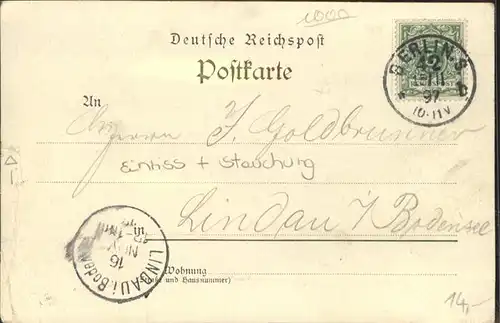 1000
Deutsche Reichspost
Postkarte
BERLIN. S
12
97
10-11V
An
Herrn J. Goldbrunner
Einriss + Stauchung
Lindau i/Bodensee
in
LINDAU i. Boden
16
NOV
Wohnung
(Straße und Hausnummer)
14,-